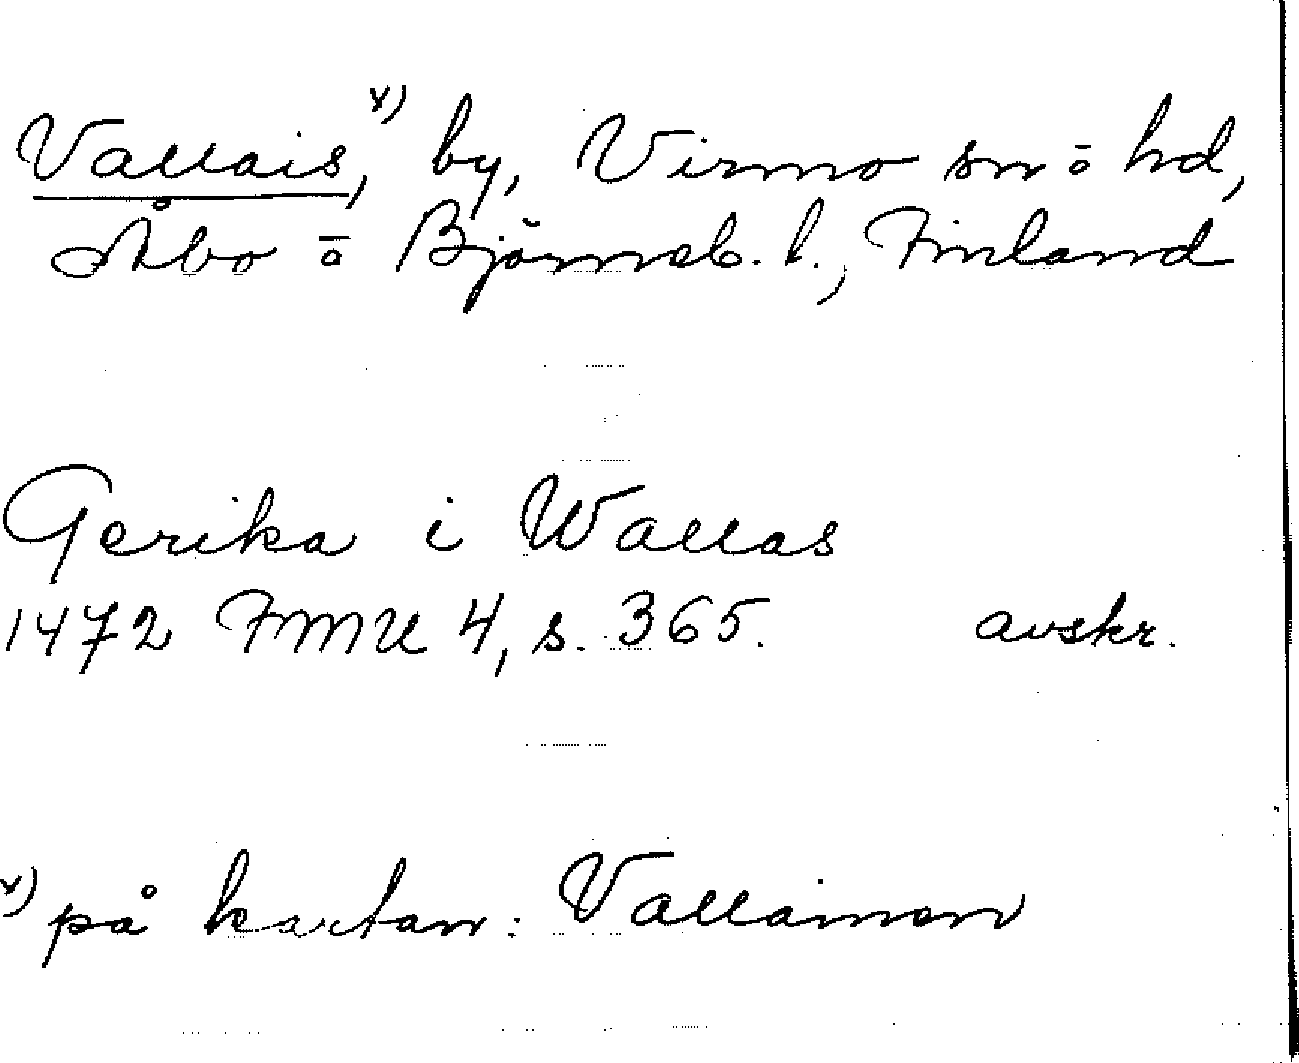 Vallais,x) by, Virmo sn o hd,
Åbo o Björneb. l., Finland
Gerika i Wallas
1472 FMU 4, s. 365. avskr.
x) på kartan: Vallainen